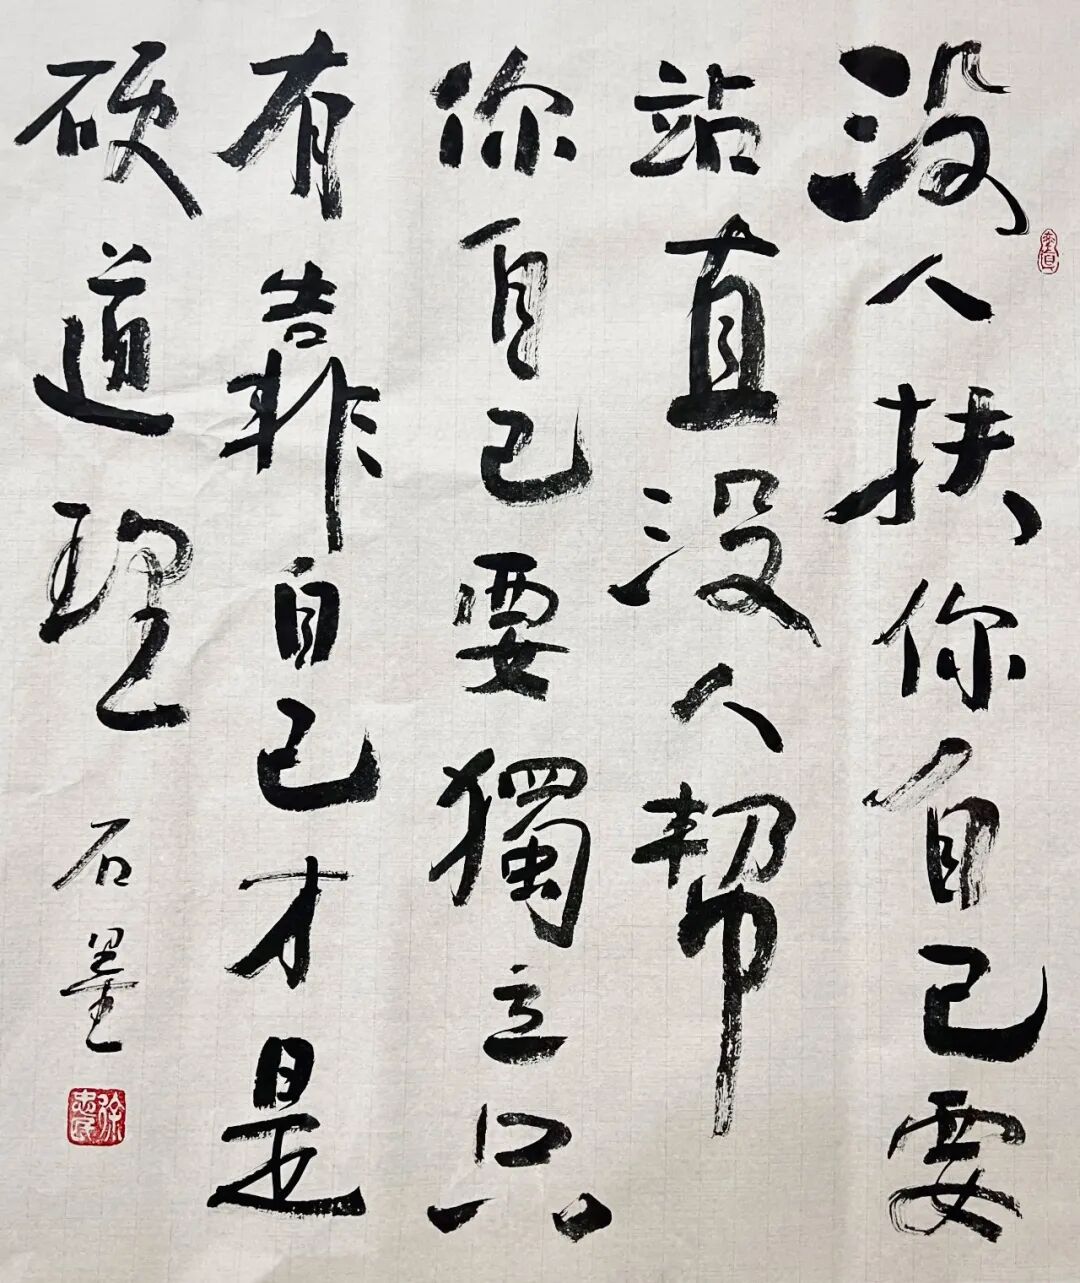 没人扶你自己要
站直没人帮
你自己要獨立只
有靠自己才是
硬道理
石墨
徐忠民